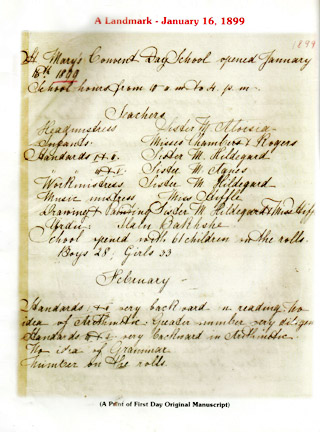 A Landmark - January 16, 1899
1899
St Mary's Convent Day School opened January
16th 1899
School hours from 10 a.m. to 4. p.m.
Teachers
Headmistress Sister M. Aloysia
Infants: Misses Chambers & Rogers
Standards Sister M. Hildegard
Sister M. Agnes
Workmistress, Sister M. Hildegard
Music mistress Miss
Drawing & Painting Sister M. Hildegard & Miss
Urdu: Bakhshe
School opened with 61 children on the rolls.
Boys 28. Girls 33
February -
Standards very backward in reading. No
idea of Arithmetic. Greater number very
Standards very backward in Arithmetic.
No idea of Grammar
Number on the rolls.
(A Print of First Day Original Manuscript)